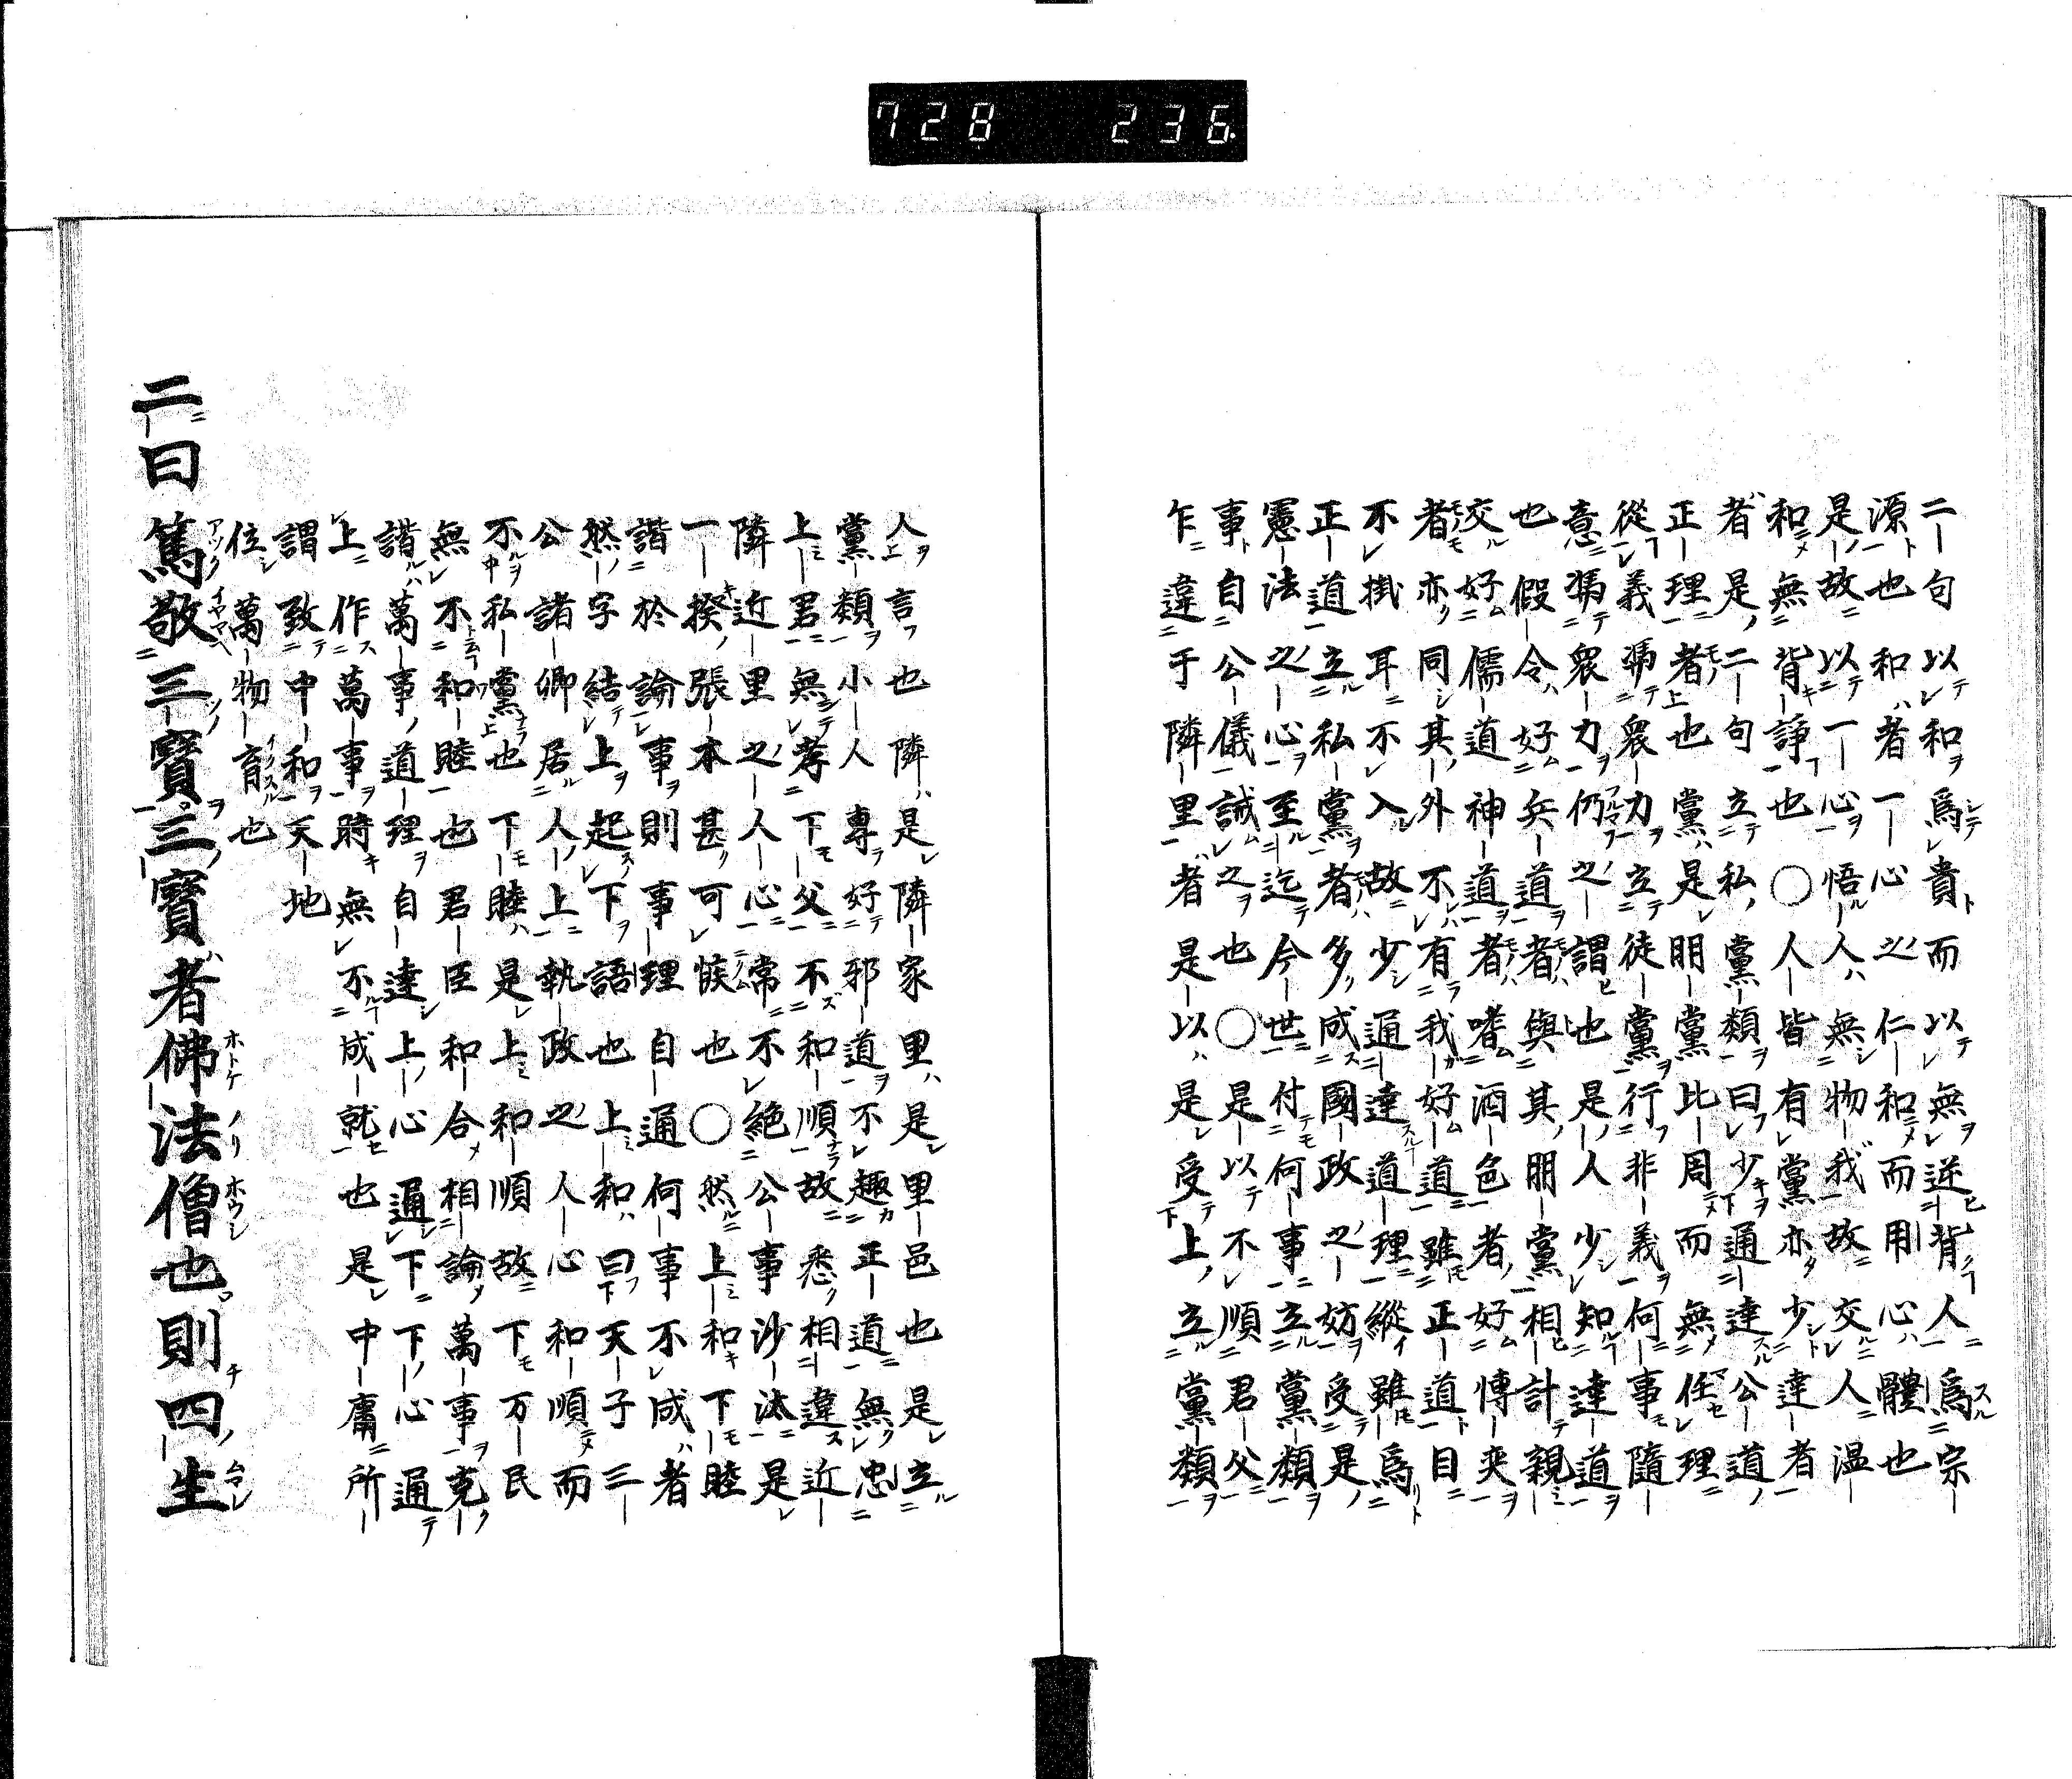 728 236
二句以和爲貴而以無逆背人爲宗
源也和者一心之仁和而用心體也
是故以一心悟人無物我故交人温
和無背諍也〇人皆有黨亦少達者
者是二句立私黨類曰少通達公道
正理者也黨是朋黨比周而無任理
從義馮衆力立徒黨行非義何事隨
意馮衆力仍之謂也是人少知達道
也假令好兵道者與其朋黨相計親
交好儒道神道者嗜酒色者好博奕
者亦同其外不有我好道雖正道目
不掛耳不入故少通達道理縱雖爲
正道立私黨者多成國政之妨受是
憲法之心至迄今世付何事立黨類
事自公儀誡之也〇是以不順君父
乍違于隣里者是以是受上立黨類
人言也隣是隣家里是里邑也是立
黨類小人專好邪道不趣正道無忠
上君無孝下父不和順故悉相違近
隣近里之人心常不絕公事沙汰是
一揆張本甚可悞也〇然上和下睦
諧於論事則事理自通何事不成者
然字結上起下語也上和曰天子三
公諸卿居人上執政之人心和順而
不私黨也下睦是上和順故下万民
無不和睦也君臣和合相論萬事克
諧萬事道理自達上心通下下心通
上作萬事時無不成就也是中庸所
謂致中和天地
位萬物育也
二曰篤敬三寶三寶者佛法僧也則四生